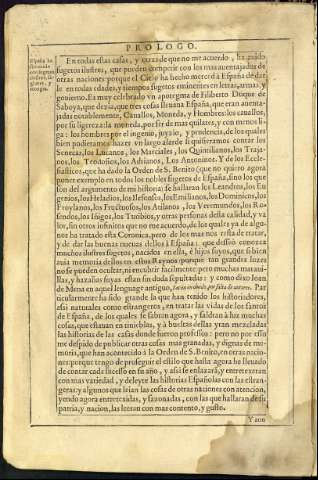 PROLOGO.
En todas estas cosas, y otras de que no me acuerdo, ha auido
sugetos ilustres, que pueden competir con los mas auentajados de
otras naciones: porque el Cielo ha hecho merced à España de dar
le en todas edades, y tiempos sugetos eminentes en letras, armas, y
gouierno. Es muy celebrado vn apotegma de Filiberto Duque de
Saboya, que dezia, que tres cosas lleuaua España, que eran auenta-
jadas notablemente, Cauallos, Moneda, y Hombres: los cauallos,
por su ligereza: la moneda, por ser de mas quilates, y con menos li-
ga: los hombres por el ingenio, juyzio, y prudencia, de los quales
bien pudieramos hazer vn largo alarde si quisieramos contar los
Senecas, los Lucanos, los Marciales, los Quintilianos, los Traja-
nos, los Teodosios, los Adrianos, los Antoninos. Y de los Ecle-
siasticos, que ha dado la Orden de S. Benito (que no quiero agora
poner exemplo en todos los nobles sugetos de España, sino los que
son del argumento de mi historia) se hallaràn los Leandros, los Eu-
genios, los Heladios, los Ilefonsos, los Emilianos, los Dominicos, los
Froylanos, los Fructuosos, los Atilanos, los Veremundos, los Ro-
sendos, los Iñigos, los Turibios, y otras personas desta calidad, y va
lor, sin otros infinitos que no me acuerdo, de los quales ya de algu-
nos he tratado esta Coronica, pero de los mas nos resta de tratar,
y de dar las buenas nueuas dellos à España: que desseò conocer
muchos illustres sugetos, nacidos en ella, è hijos suyos, que si bien
auia memoria dellos en estos Reynos porque tan grandes luzes
no se pueden ocultar, ni encubrir facilmente pero muchas maraui-
llas, y hazañas suyas estan sin duda sepultadas: y como dixo Iuan
de Mena en aquel lenguage antiguo, por falta de autores. Par
ticularmente ha sido grande la que han tenido los historiadores,
assi naturales como estrangeros, en tratar las vidas de los santos
de España, de los quales se sabran agora, y saldràn à luz muchas
cosas, que estauan en tinieblas, y à bueltas dellas yran mezcladas
las historias de las casas donde fueron professos: pero no por esso
me despido de publicar otras cosas mas granadas, y dignas de me
moria, que han acontecido à la Orden de S. Benito, en otras nacio-
nes: porque tengo de proseguir el estilo que hasta agora he lleuado
de contar cada sucesso en su año, y assi se enlazarà, y entretexeran
con mas variedad, y deleyte las historias Españolas con las estran-
geras: y algunos que leian las cosas de otras naciones con atencion,
yendo agora entretexidas, y sazonadas, con las que hallaran de su
patria, y nacion, las leeran con mas contento, y gusto.
Y aun